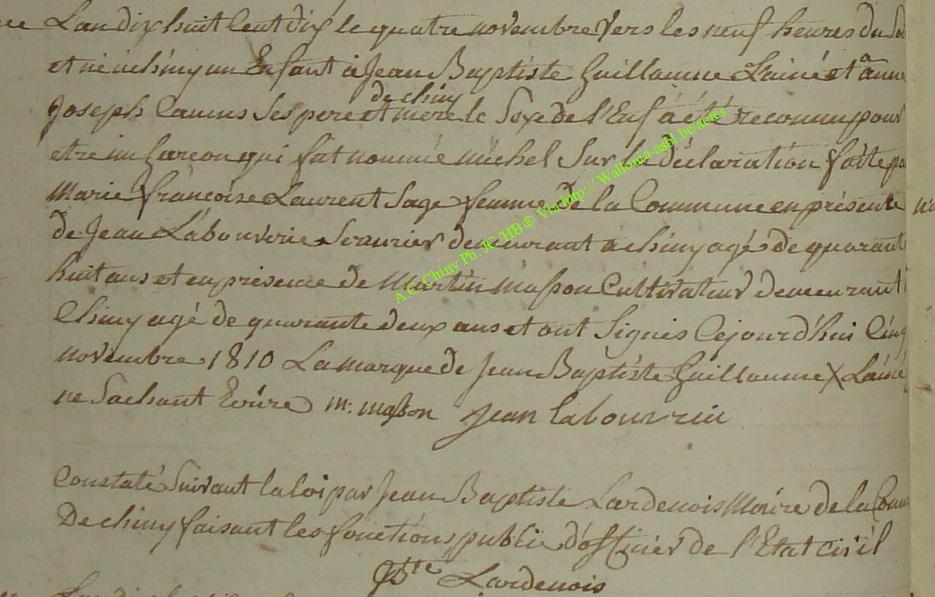 L'an dix huit cent dix le quatre novembre vers les neuf heures du
est né a chiny un Enfant à Jean Baptiste Guillaume Lainé et a anne
de chiny
Joseph Camus Ses pere et mere le Sexe de l'Enf a été reconnu pour
etre un garçon qui fut nommé michel Sur la déclaration faite pa
Marie françoise Laurent Sage femme de la Commune en présence
de Jean Labouverie Serurier demeurant à chiny agé de quarant
huit ans et en présence de Martin masson Cultivateur demeurant
Chiny agé de quarante deux ans et ont Signés Cejourd'hui Cinq
novembre 1810 La marque de Jean Baptiste Guillaume X Lainé
ne Sachant Ecrire m: masson Jean Labouvrie
Constaté Suivant la loi par Jean Baptiste Lardenois Maire de la Comm
De chiny faisant les fonctions public d'officier de l'Etat civil
JBte Lardenois
A.C. Chiny Ph. JC HB® Via http://Wallonia-asbl.be/actes